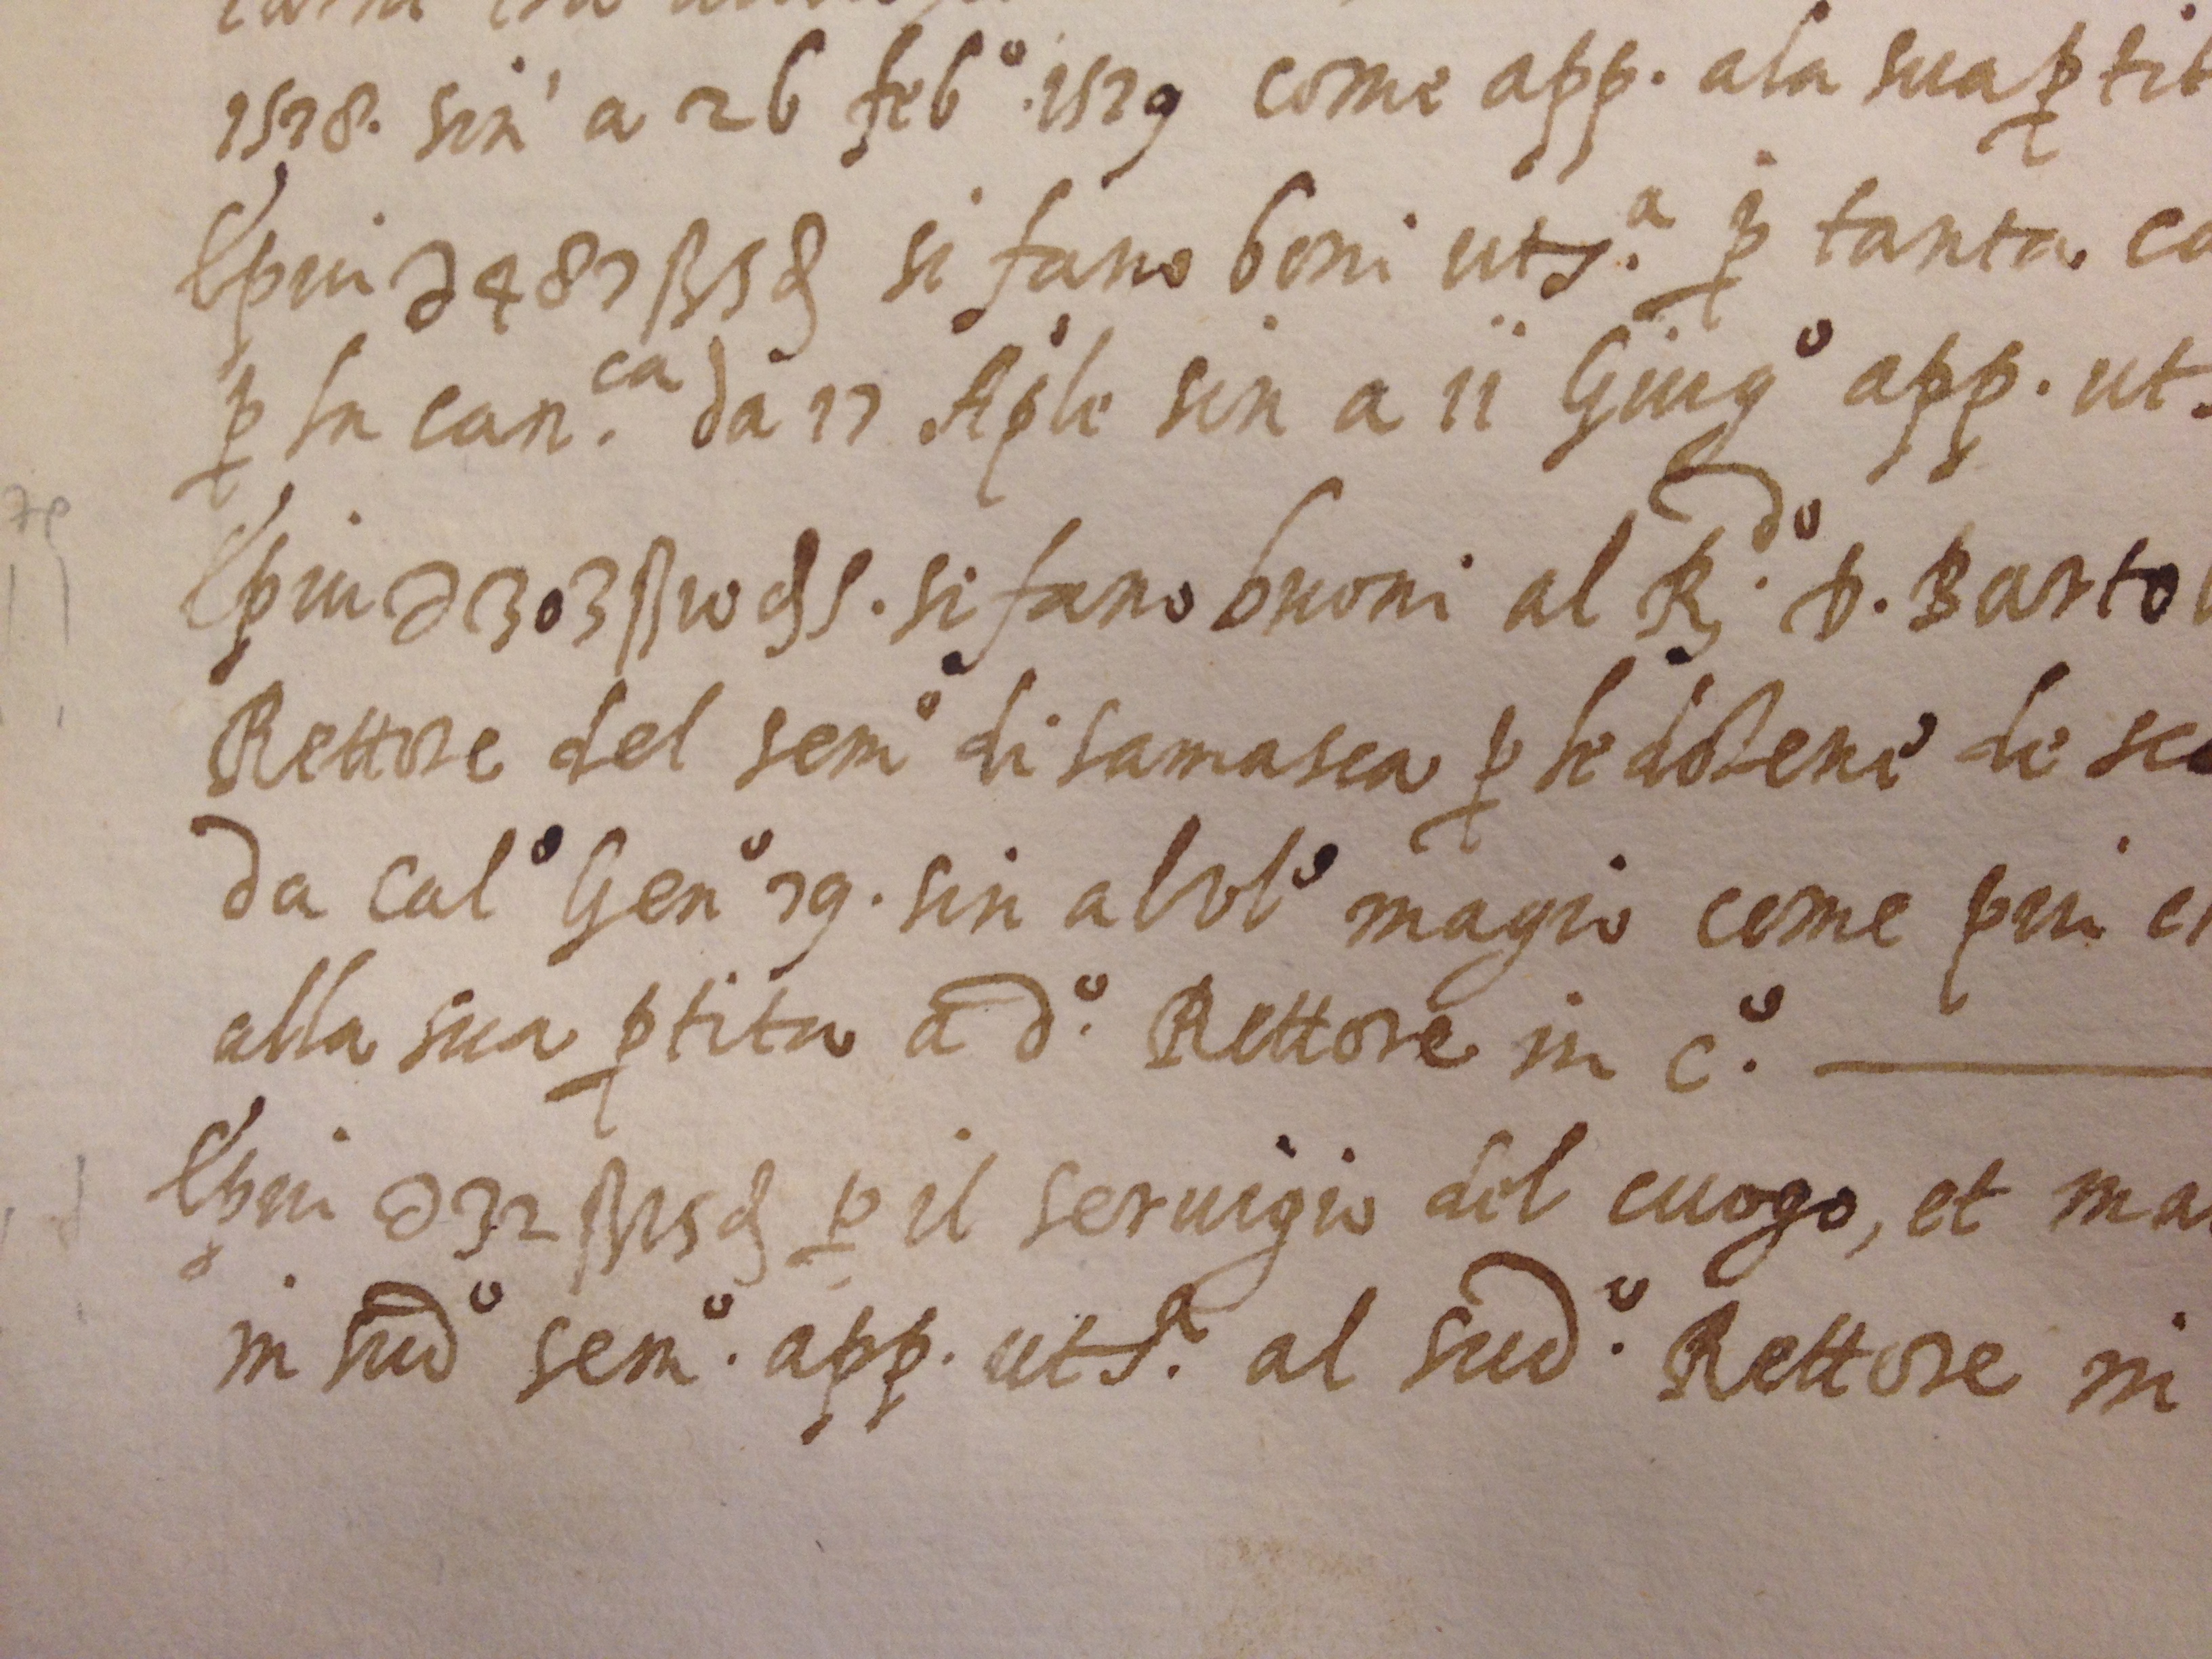 1578. sin' a 26 feb° .1579 come app. ala sua ptit
E piu d 487 ß 5 d si fano boni ut s.ª p tanta ca
p la can.ca da 17 Aple sin a ii Giug° app. ut
E piu d 303 ß 10 d 5. si fano buoni al R.do D. Bartol
Rettore del sem° di Somasca p le dozene de sco
da cal° Gen° 79. sin al ul° magio come piu
alla sua ptita a d.° Rettore in c.°
E piu d 32 ß 15 d p il seruigio del cuogo, et ma
in sud° sem°. app. ut s.ª al sud.° Rettore in